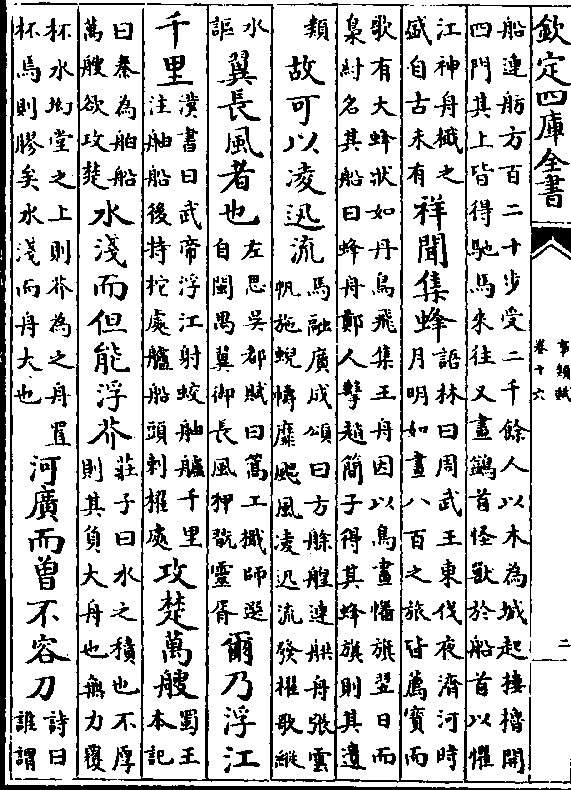 欽定四庫全書
事類賦
卷十六
二
船連舫方百二十步受二千餘人以木為城起樓櫓開
四門其上皆得馳馬來往又畫鷁首怪獸於船首以懼
江神舟檝之
盛自古未有
祥聞集蜂
語林曰周武王東伐夜濟河時
月明如晝八百之旅皆薦實而
歌有大蜂狀如丹鳥飛集王舟因以鳥畫幡旗翌日而
梟紂名其船曰蜂舟鄭人擊趙簡子得其蜂旗則其遺
類
故可以凌迅流
馬融廣成頌曰方艅艎連舼舟張雲
帆施蜺幬靡颸風凌迅流發櫂歌縱
水
謳
翼長風者也
左思吳都賦曰篙工檝師選
自閩禺翼御長風狎翫靈胥
爾乃浮江
千里
漢書曰武帝浮江射蛟舳艫千里
注舳船後持柁處艫船頭刺櫂處
攻楚萬艘
蜀王
本記
曰秦為舶船
萬艘欲攻楚
水淺而但能浮芥
莊子曰水之積也不厚
則其負大舟也無力覆
杯水坳堂之上則芥為之舟置
杯焉則膠矣水淺而舟大也
河廣而曾不容刀
詩曰
誰謂